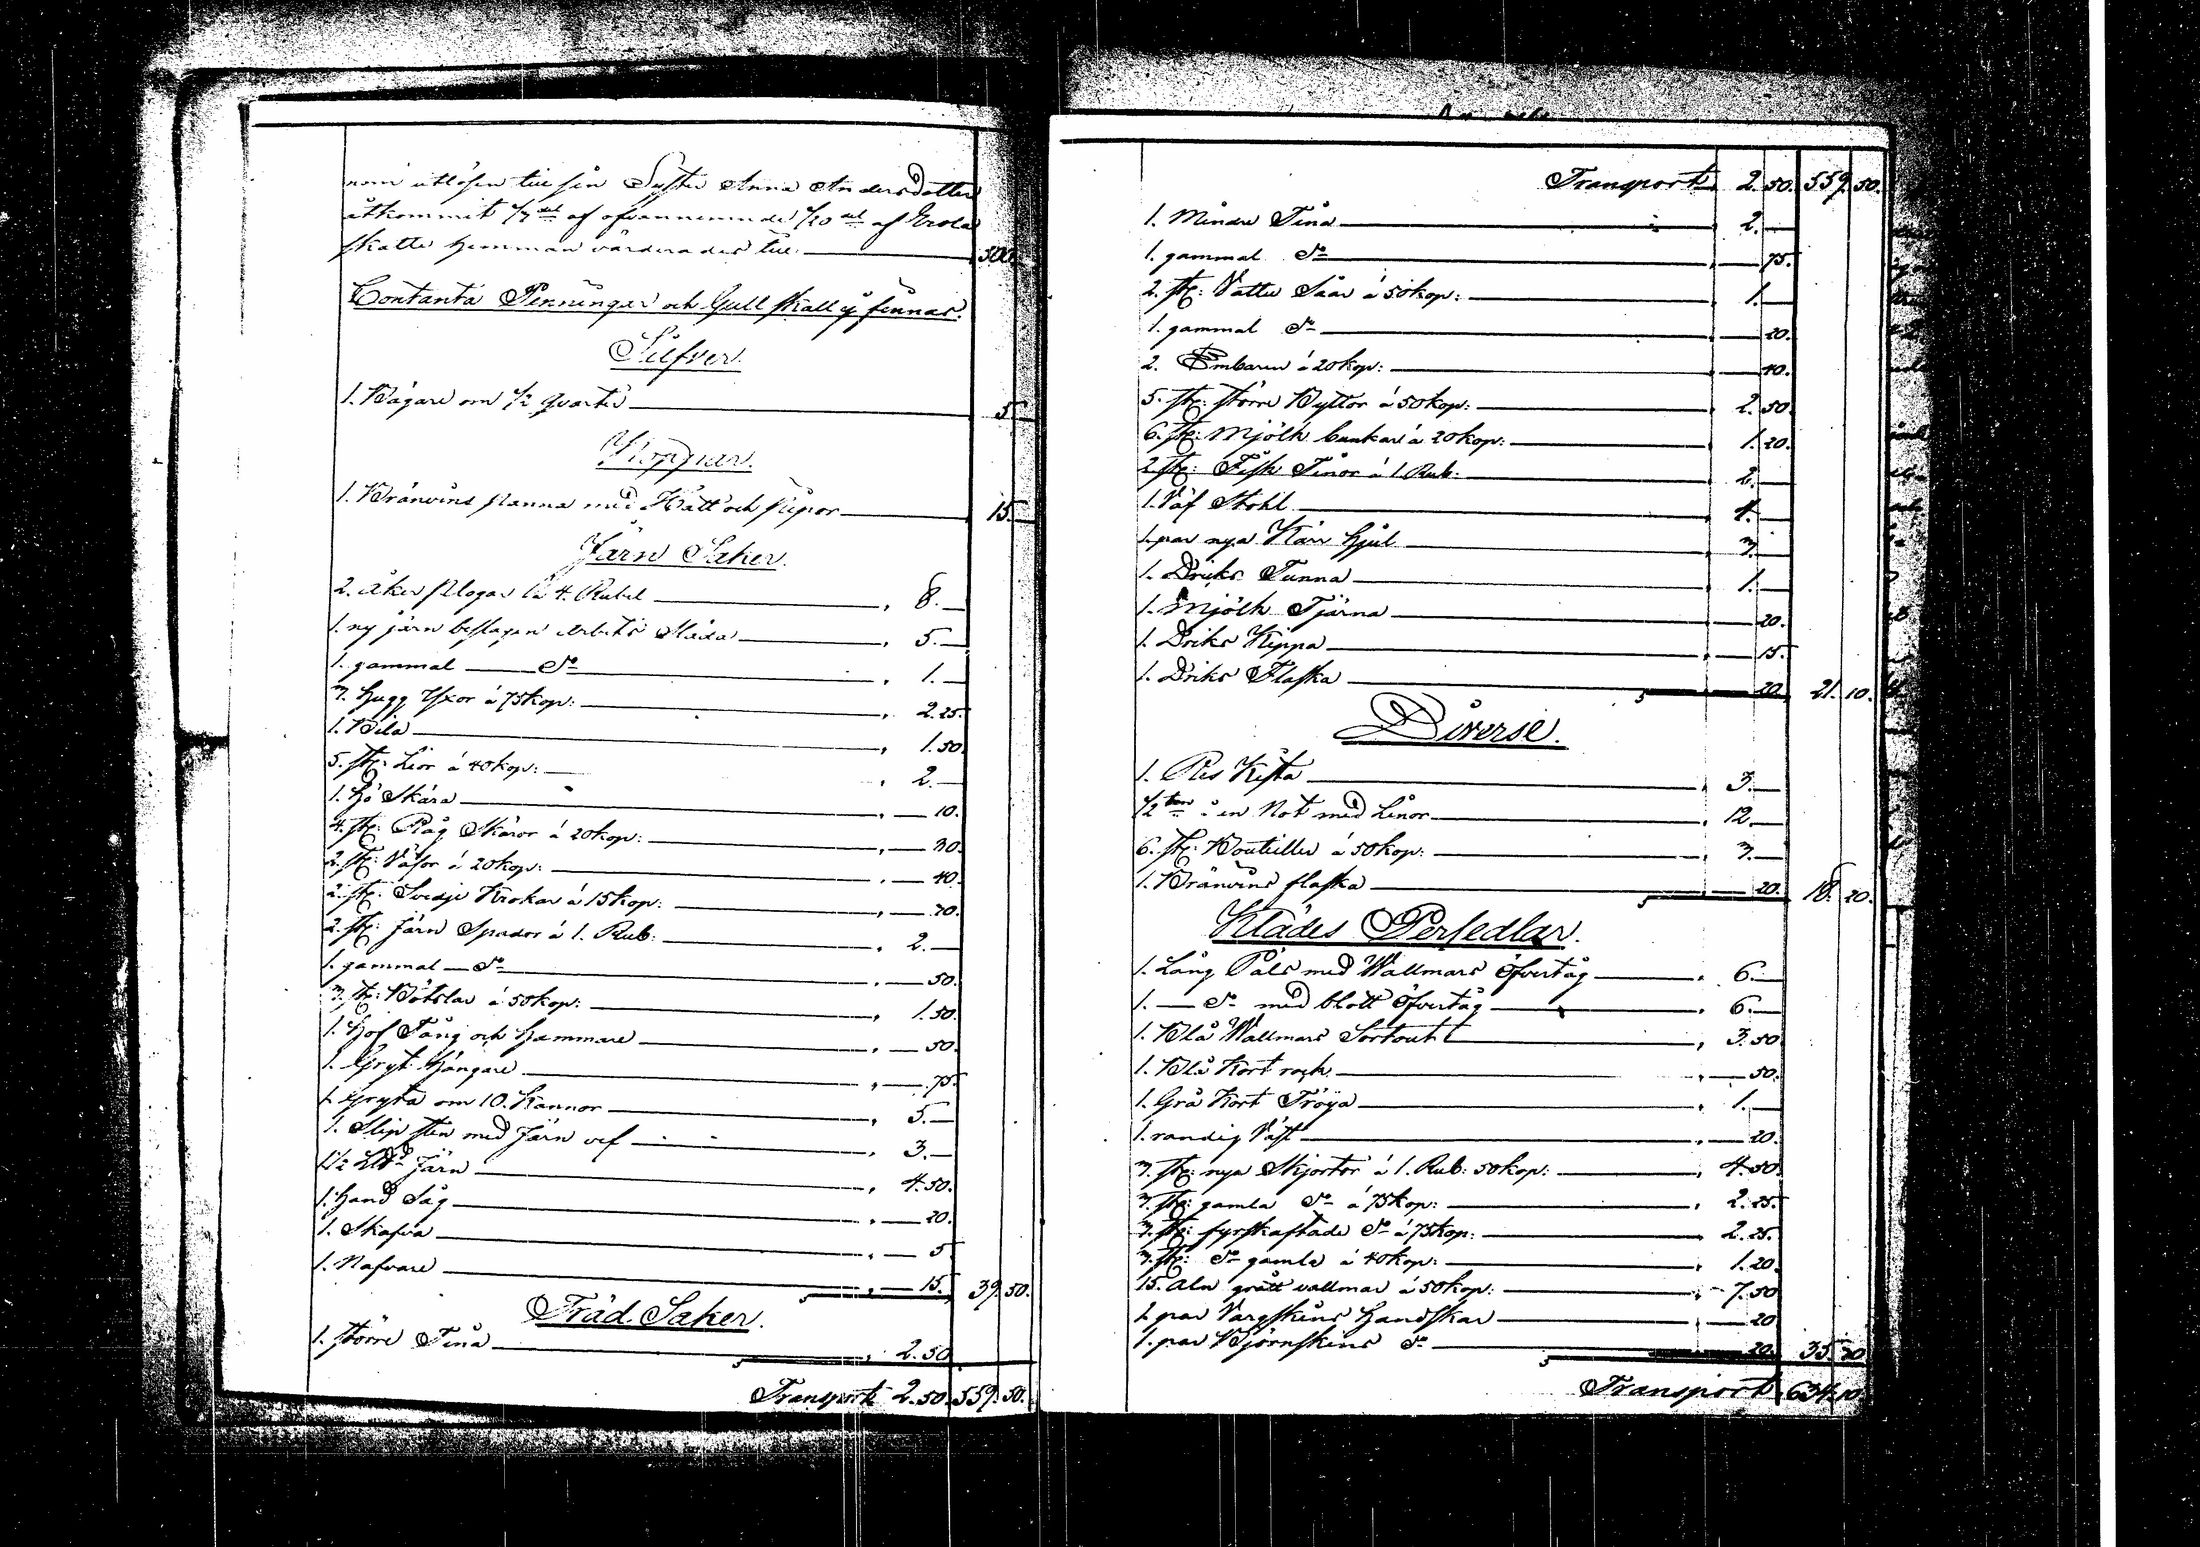 nom utlösen till sin Syster Anna Andersdotter
åtkommit 1/3 del af ofvannemnde 1/20 del af Erola
skatte hemman värderades till 500.
Contanta Penningar och Gull skall ej finnas.
Silfver.
1. Bägare om 1/2 qvarter 5
Koppar.
1. Bränvins panna med Hatt och pipor 15.
Järn Saker.
2. åker plogar à 4. Rubel 8.
1. ny järn beslagen Arbets Släda 5.
1. gammal do 1.
3. hugg Yxor à 75 kop: 2.25.
1. Bila 1.50.
5. st: Liar à 40 kop: 2.
1. hö Skära 10.
4. st: Råg Skäror à 20 kop: 80.
2. st: à 20 kop: 40.
2. st: Svedje Krokar à 15 kop: 30.
2. st: Järn Spador à 1. Rub: 2.
1. gammal do 50.
3. st: à 50 kop: 1.50.
1. Hof Tång och hammare 50.
1. Gryt Hängare 75.
1. Gryta om 10. Kannor 5.
1. Slip sten med Järn vef 3.
1 1/2 Järn 4.50.
1. Hand Såg 20.
1. Skafva 5
1. Nafvare 15. 39.50.
Träd Saker.
1. större Tina 2.50
Transport 2.50. 559.50.
Transport 2.50. 559.50.
1. Mindre Tina 2.
1. gammal do 75.
2. st: Vattu Såar à 50 kop: 1.
1. gammal do 20.
2. Embaren à 20 kop: 40.
5. st: större Byttor à 50 kop: 2.50.
6. st: Mjölk bunkar à 20 kop: 1.20.
2. st: Fisk Tinor à 1. Rub: 2.
1. Väf Stohl 4.
1. par nya Kärr hjul 3.
1. Dricks Tunna 1.
1. Mjölk Tjärna 20.
1. Driks Kippa 15.
1. Driks Flaska 20. 21.10.
Diverse.
1. Res Kista 3.
1/2 ten i en Not med Linor 12.
6. st: Bouteiller à 50 kop: 3.
1. Bränvins flaska 20. 18.20.
Klädes Persedlar.
1. Lång Päls med Wallmars Öfvertåg 6.
1. do med blott Öfvertåg 6.
1. Blå Wallmars Sortout 3.50
1. Blå Kort rock 50.
1. Grå Kort Tröya 1.
1. randig Väst 20.
3. st: nya Skjortor à 1. Rub: 50 kop: 4.50.
3. st: gamla do à 75 kop: 2.25.
3. st: fyrskaftade do à 75 kop: 2.25.
3. st: do gamla à 40 kop: 1.20.
15. Aln grått vallmar à 50 kop: 7.50
1. par Vargskins Handskar 20
1. par Björnskins do 20. 35.30
Transport 634.10.